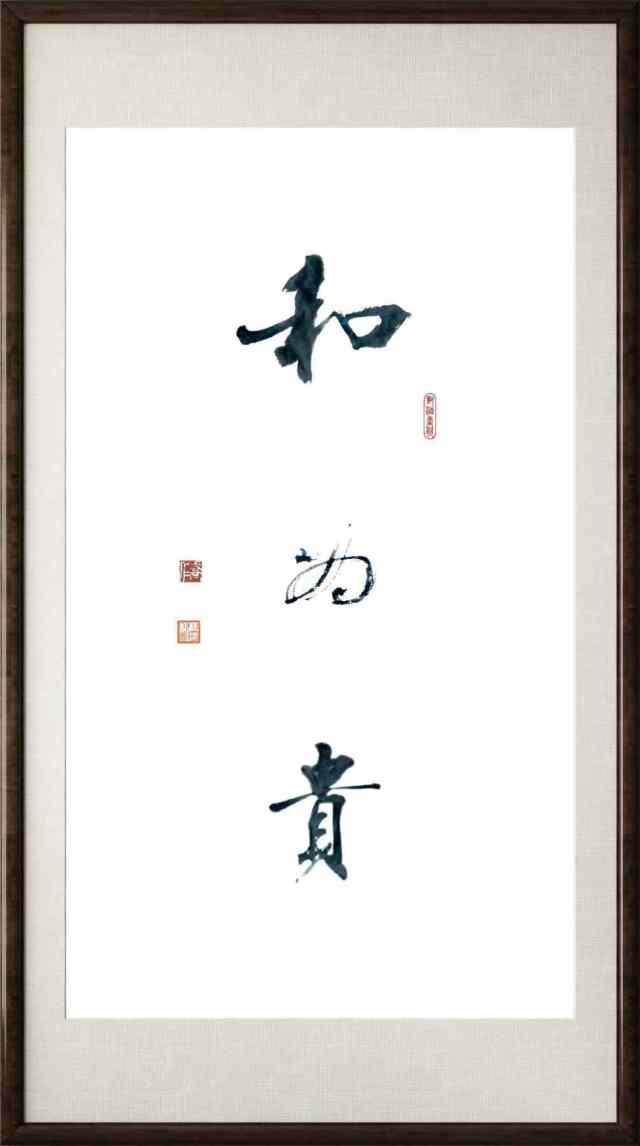 和为貴